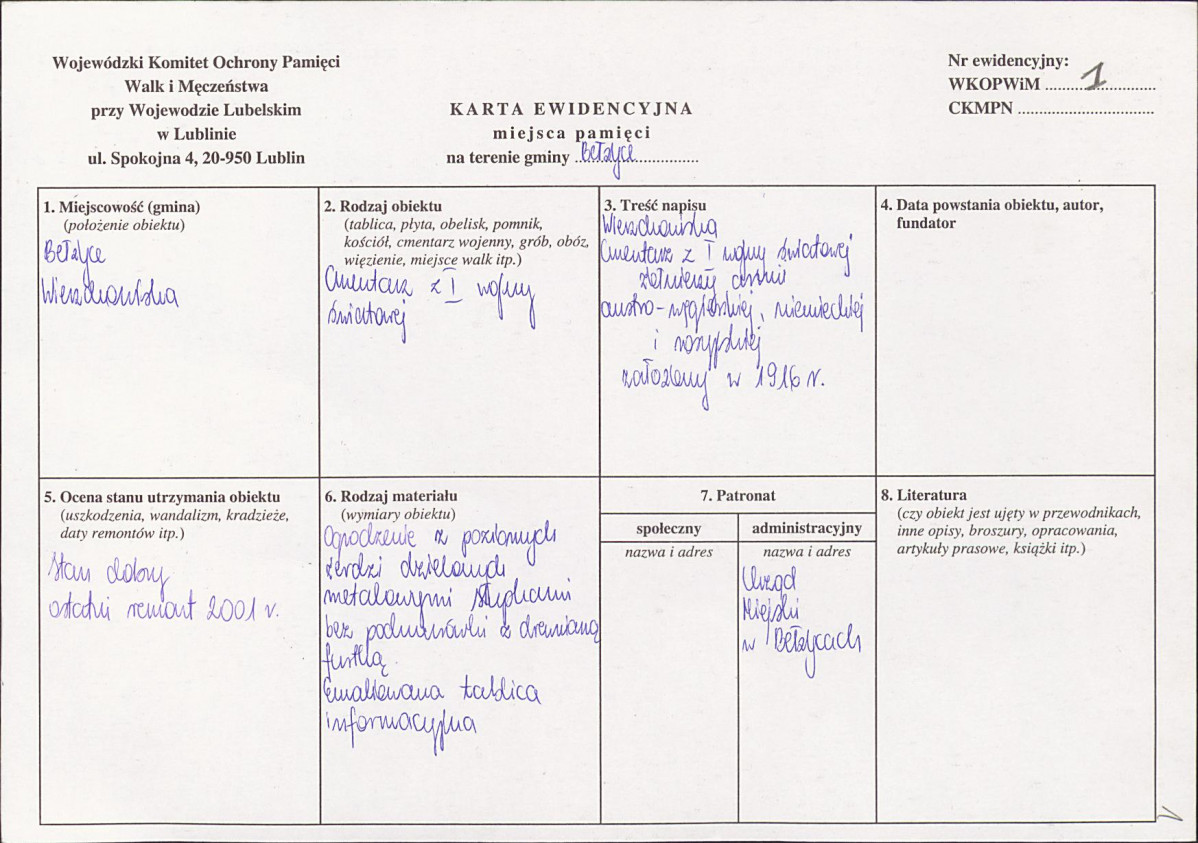 Wojewódzki Komitet Ochrony Pamięci
Walk i Męczeństwa
przy Wojewodzie Lubelskim
w Lublinie
ul. Spokojna 4, 20-950 Lublin
KARTA EWIDENCYJNA
miejsca pamięci
na terenie gminy Bełżyce
Nr ewidencyjny:
WKOPWiM 1
CKMPN
1. Miejscowość (gmina)
(położenie obiektu)
Bełżyce
Wierzchowiska
2. Rodzaj obiektu
(tablica, płyta, obelisk, pomnik,
kościół, cmentarz wojenny, grób, obóz,
więzienie, miejsce walk itp.)
Cmentarz z I wojny
światowej
3. Treść napisu
Wierzchowiska
Cmentarz z I wojny światowej
żołnierzy armii
austro-węgierskiej, niemieckiej
i rosyjskiej
założony w 1916 r.
4. Data powstania obiektu, autor,
fundator
5. Ocena stanu utrzymania obiektu
(uszkodzenia, wandalizm, kradzieże,
daty remontów itp.)
Stan dobry
ostatni remont 2001 r.
6. Rodzaj materiału
(wymiary obiektu)
Ogrodzenie z poziomych
żerdzi dzielonych
metalowymi słupkami
bez podmurówki z drewnianą
furtką.
Emaliowana tablica
informacyjna
7. Patronat
społeczny
nazwa i adres
administracyjny
nazwa i adres
Urząd
Miejski
w Bełżycach
8. Literatura
(czy obiekt jest ujęty w przewodnikach,
inne opisy, broszury, opracowania,
artykuły prasowe, książki itp.)